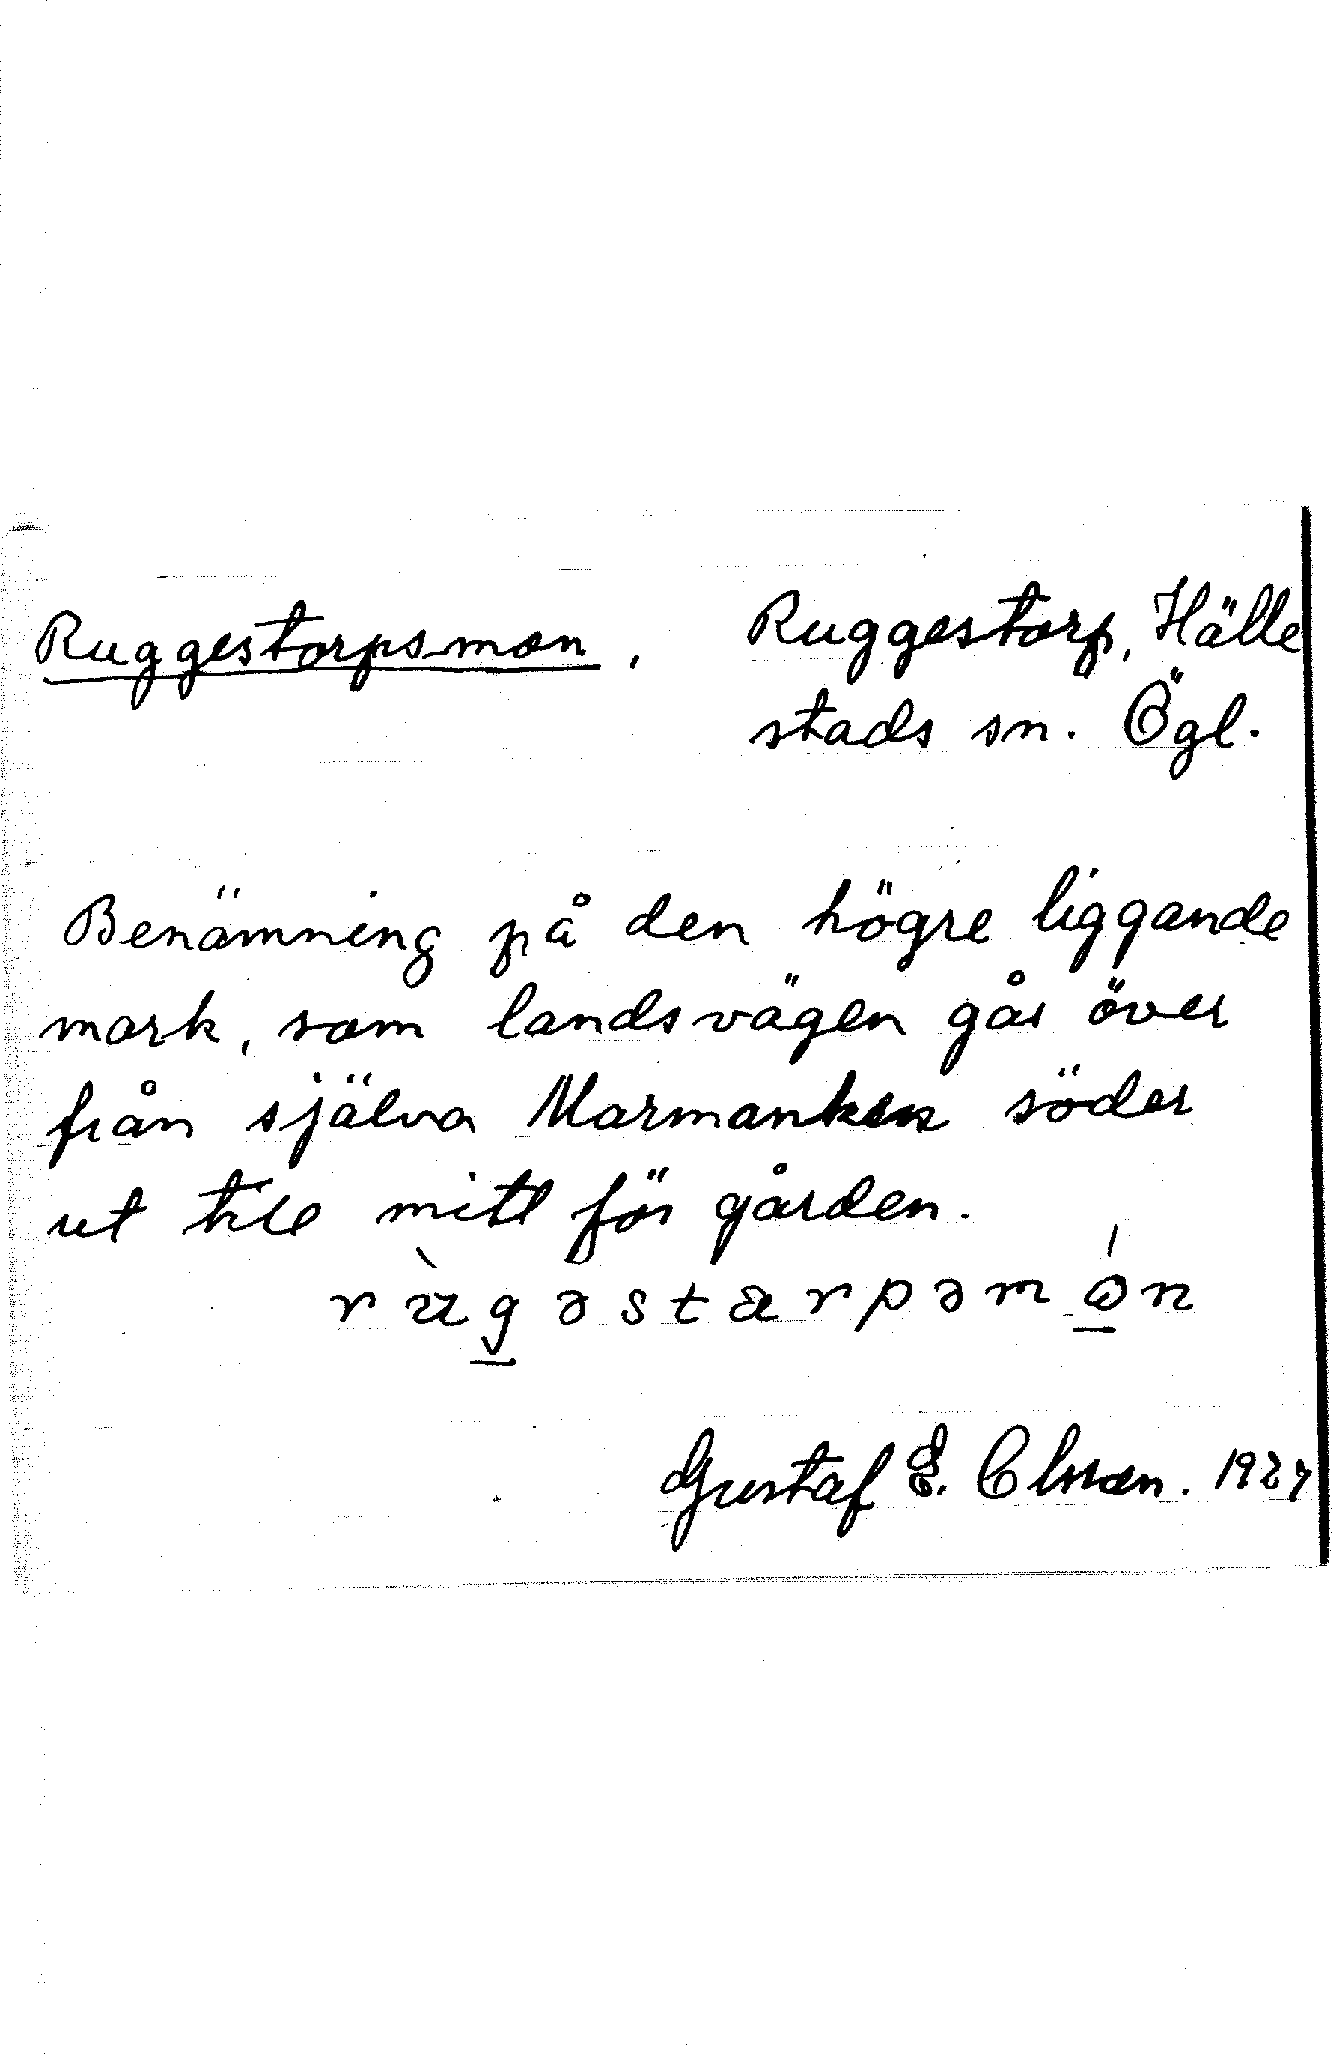 Ruggestorpsmon. Ruggestorp, Hälle
stads sn. Ögl.
Benämning på den högre liggande
mark, som landsvägen går över
från själva Marmanken söder
ut till mitt för gården.
Gustaf E. Olsson. 1927